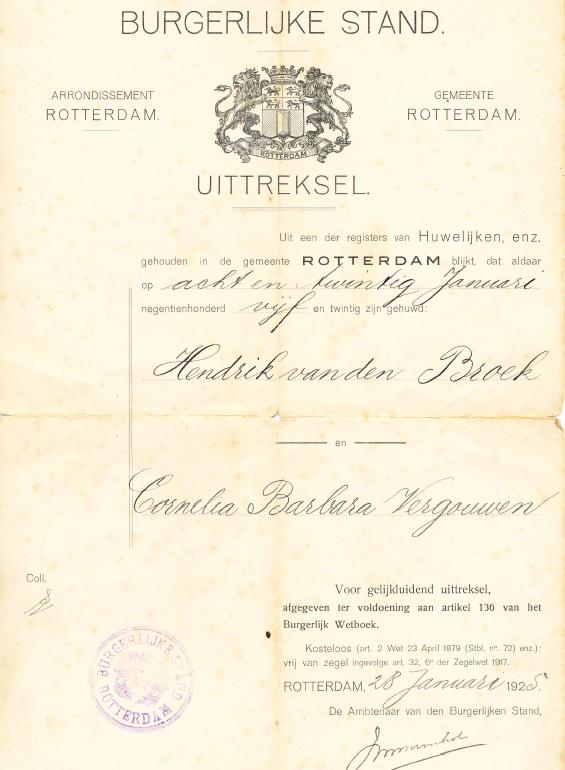 BURGERLIJKE STAND.
ARRONDISSEMENT
ROTTERDAM.
GEMEENTE
ROTTERDAM.
ROTTERDAM
UITTREKSEL.
Uit een der registers van Huwelijken, enz.
gehouden in de gemeente ROTTERDAM blijkt, dat aldaar
op acht en twintig Januari
negentienhonderd vijf en twintig zijn gehuwd:
Hendrik van den Broek
en
Cornelia Barbara Vergouwen
Coll.
Voor gelijkluidend uittreksel,
afgegeven ter voldoening aan artikel 136 van het
Burgerlijk Wetboek.
Kosteloos (art. 2 Wet 23 April 1879 (Stbl. nº. 72) enz.);
vrij van zegel ingevolge art. 32, 6º der Zegelwet 1917.
ROTTERDAM, 28 Januari 1925.
De Ambtenaar van den Burgerlijken Stand,
BURGERLIJKE STAND
ROTTERDAM